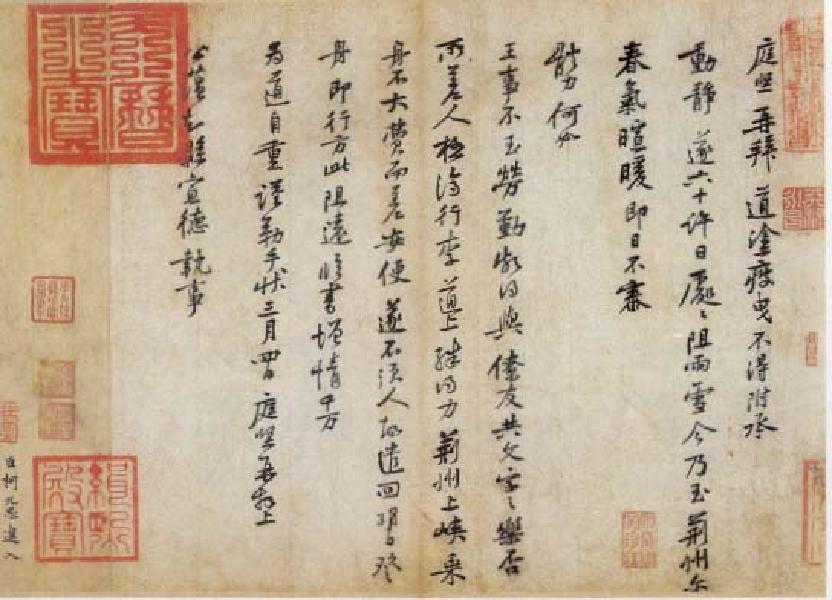 庭堅再拜道塗疲曳不得附承
動靜遂六十許日處〻阻雨雪今乃至荊州尒
春氣暄暖即日不審
體力何如
王事不至勞勤頗得與僚友共文字之樂否
所差人極濟行李道上殊得力荊州上峽乘
舟不大費而差安便遂不須人故遣回明日登
舟即行方此阻遠臨書增情千万
為道自重謹勒手狀三月四日庭堅再拜上
公蘊知縣宣德執事
臣柯九思進入
天曆之寶
緝熙殿寶